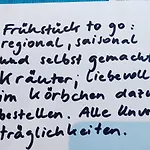 Frühstück to go:
regional, saisonal
und selbst gemacht
Kräuter; liebevoll
im Körbchen dazu
bestellen. Alle Unv
träglichkeiten.